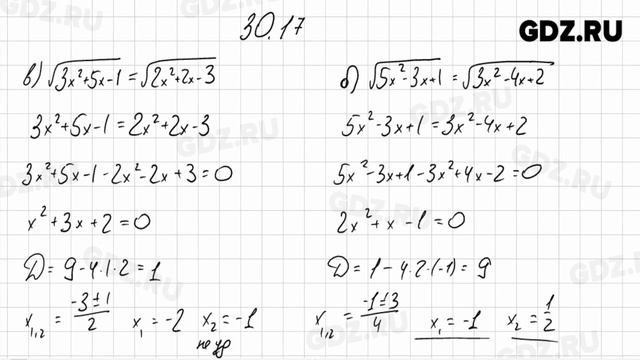 30.17
GDZ.RU
в) √3x²+5x-1 = √2x²+2x-3
3x²+5x-1 = 2x²+2x-3
3x²+5x-1-2x²-2x+3=0
x²+3x+2=0
D = 9-4·1·2=1
x₁,₂ = -3±1/2 x₁=-2 x₂=-1
не ур
б) √5x²-3x+1 = √3x²-4x+2
5x²-3x+1=3x²-4x+2
5x²-3x+1-3x²+4x-2=0
2x²+x-1=0
D=1-4·2·(-1)=9
x₁,₂ = -1±3/4 x₁=-1 x₂=1/2